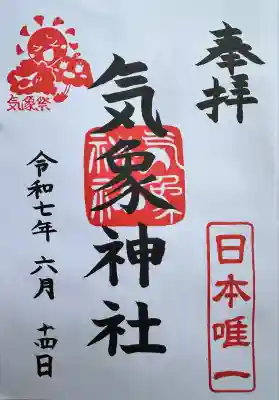 奉拝
日本唯一
気象神社
気象祭
令和七年 六月 十四日